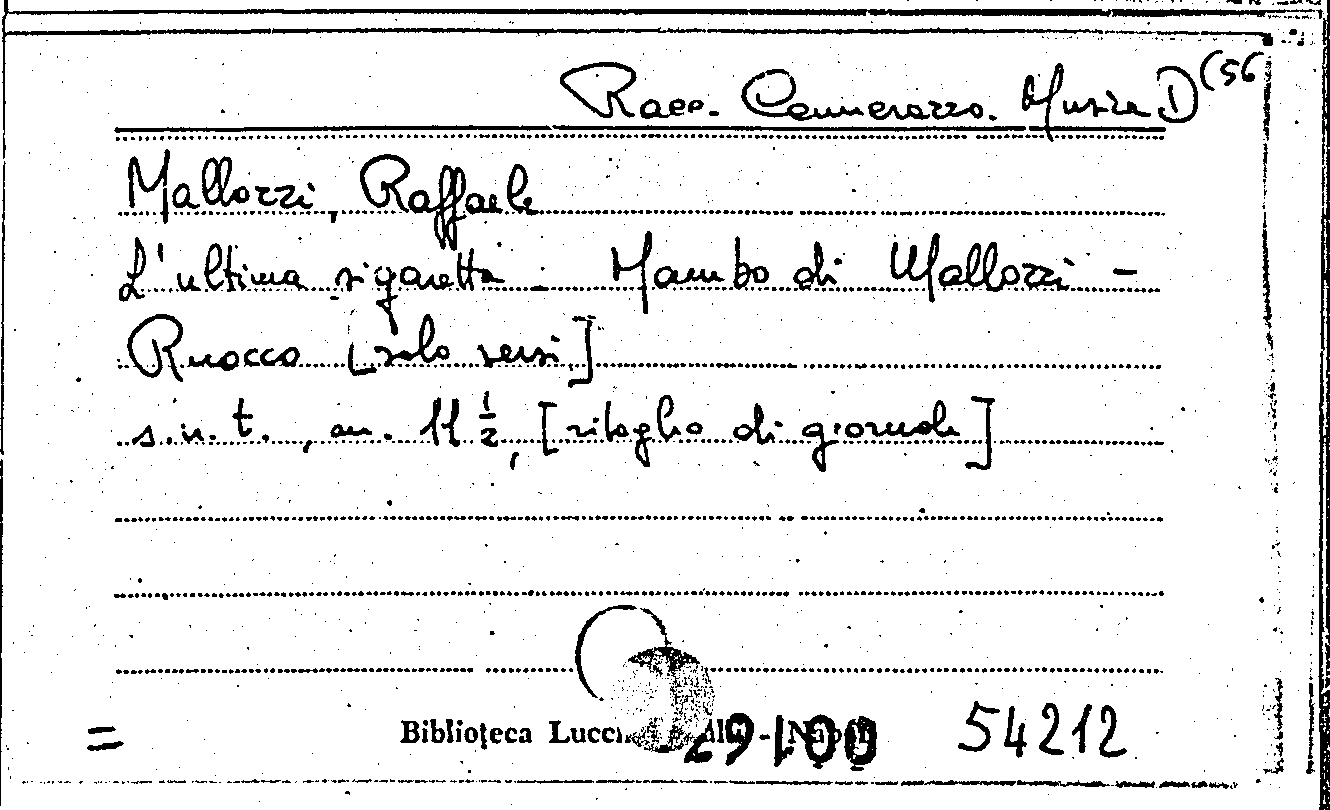 Racc. Cannerozzo. Musica D (56
Mallozzi, Raffaele
L'ultima sigaretta - Mambo di Mallozzi -
Ruocco [solo versi]
s.n.t., cm. 11 ½, [ritaglio di giornale]
= Biblioteca Lucch - Napoli 54212